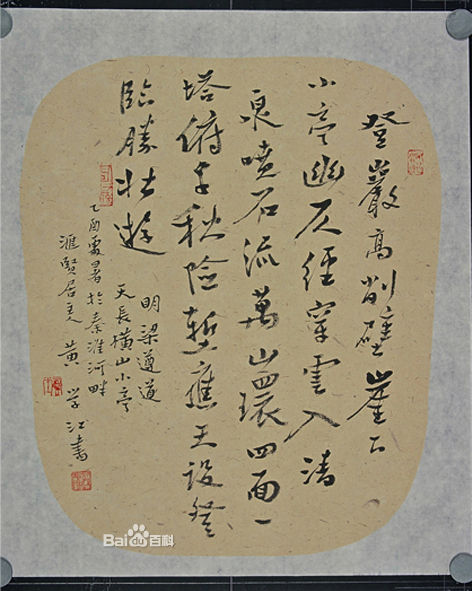 登巖高削壁崖下
小亭幽仄徑穿雲入清
泉噴石流萬山環四面一
塔俯千秋險塹應王設登
臨勝壯遊
明梁遵道
天長橫山小亭
乙酉處暑於秦淮河畔
滙賢居主人黄学江書
Baidu百科